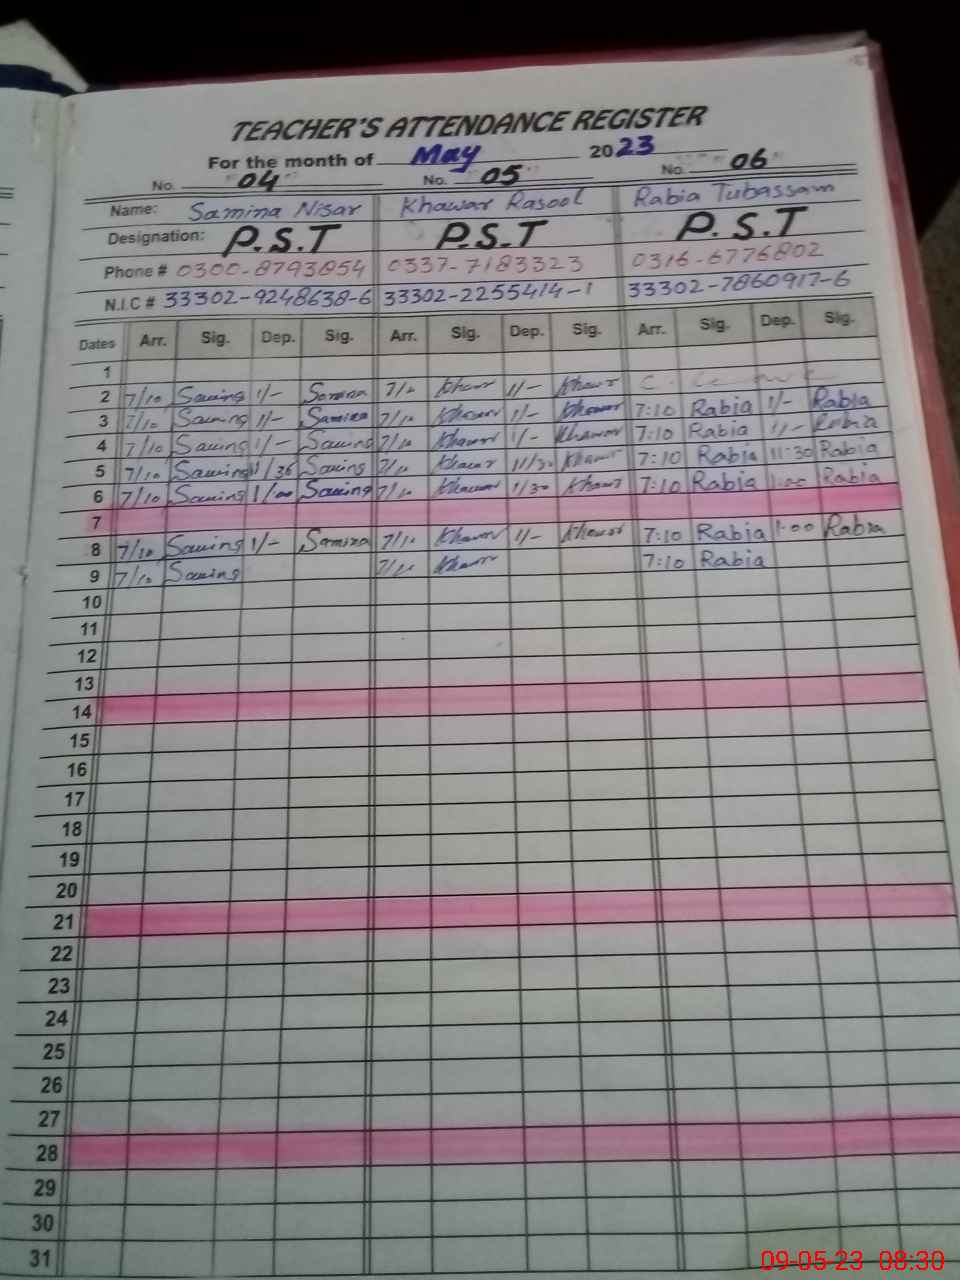 TEACHER'S ATTENDANCE REGISTER
For the month of May 2023
No. "04" No. "05" No. "06"
Name: Samina Nisar Khawar Rasool Rabia Tubassam
Designation: P.S.T P.S.T P.S.T
Phone # 0300-8793854 0337-7183323 0316-6776802
N.I.C # 33302-9248638-6 33302-2255414-1 33302-7860917-6
Dates Arr. Sig. Dep. Sig. Arr. Sig. Dep. Sig. Arr. Sig. Dep. Sig.
1
2 7/10 Samina 1/- Samina 7/10 Khawar 1/- Khawar
3 7/10 Samina 1/- Samina 7/10 Khawar 1/- Khawar 7:10 Rabia 1/- Rabia
4 7/10 Samina 1/- Samina 7/10 Khawar 1/- Khawar 7:10 Rabia 1/- Rabia
5 7/10 Samina 11/30 Samina 7/10 Khawar 11/30 Khawar 7:10 Rabia 11:30 Rabia
6 7/10 Samina 1/00 Samina 7/10 Khawar 1/30 Khawar 7:10 Rabia 1:00 Rabia
7
8 7/10 Samina 1/- Samina 7/10 Khawar 1/- Khawar 7:10 Rabia 1:00 Rabia
9 7/10 Samina 7/10 Khawar 7:10 Rabia
10
11
12
13
14
15
16
17
18
19
20
21
22
23
24
25
26
27
28
29
30
31
09-05-23 08:30